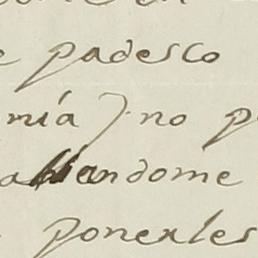 e padesco
mía) no p
allandome
ponerles